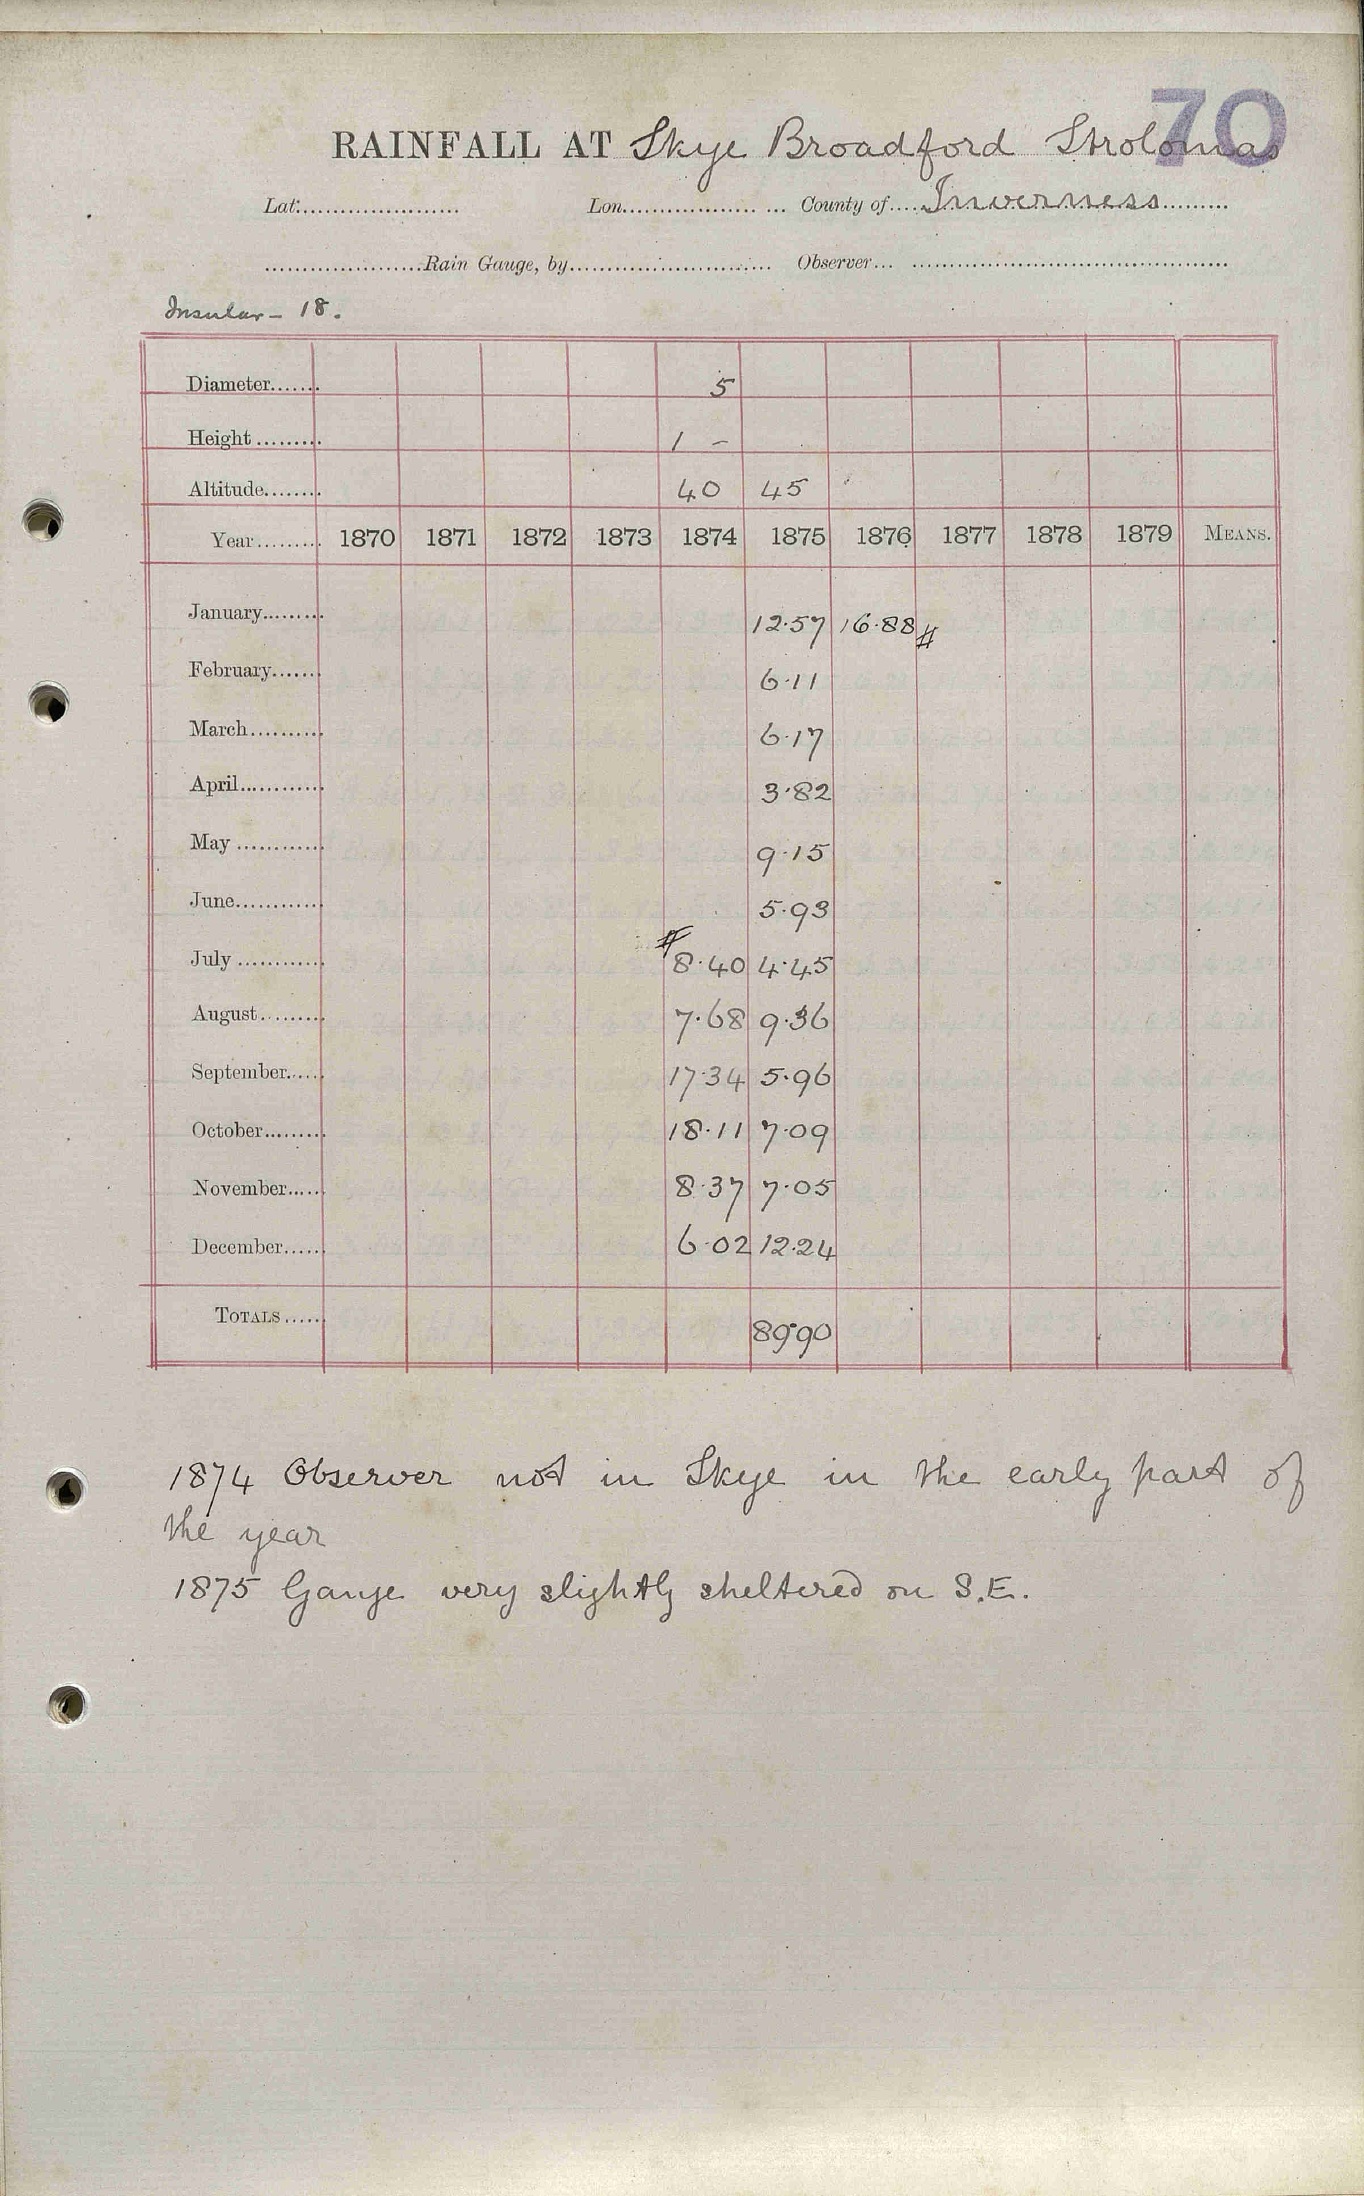 70
RAINFALL AT Skye Broadford Strolomas
Lat. Lon. County of Inverness
Rain Gauge, by Observer
Insular - 18.
Diameter 5
Height 1 -
Altitude 40 45
Year 1870 1871 1872 1873 1874 1875 1876 1877 1878 1879 MEANS.
January 12.57 16.88 #
February 6.11
March 6.17
April 3.82
May 9.15
June 5.93
July # 8.40 4.45
August 7.68 9.36
September 17.34 5.96
October 18.11 7.09
November 8.37 7.05
December 6.02 12.24
TOTALS 89.90
1874 Observer not in Skye in the early part of
the year
1875 Gauge very slightly sheltered on S.E.